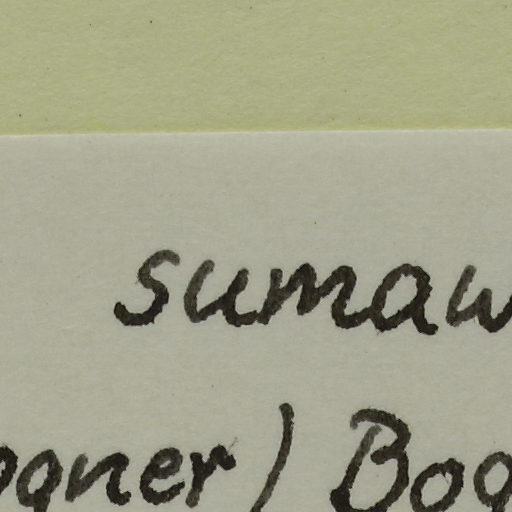 sumaw
ogner) Bog